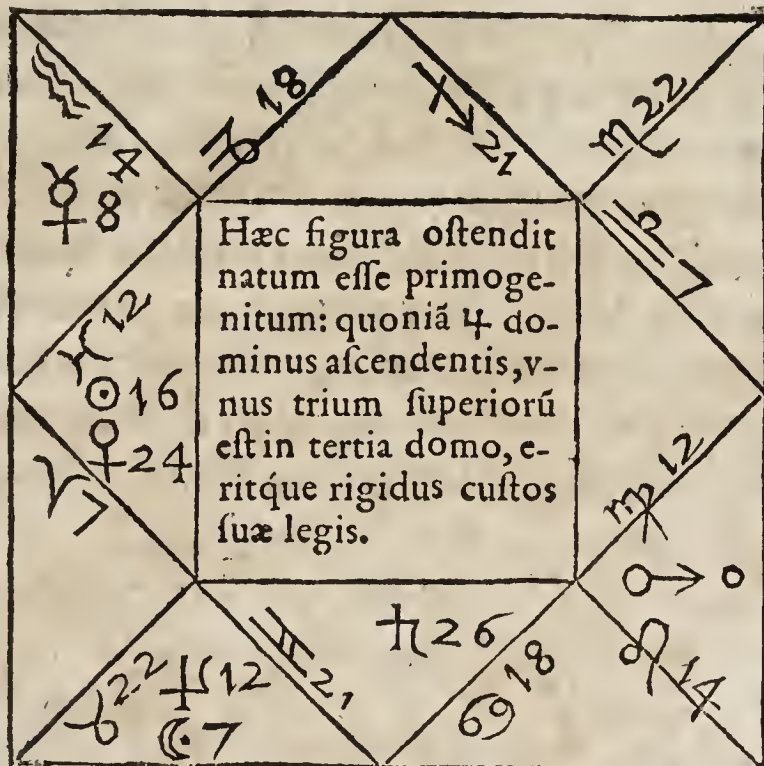 ♑ 18
♐ 21
♏ 22
♒ 14
☿ 8
♎ 7
Hæc figura oſtendit
natum eſſe primoge-
nitum: quoniã ♃ do-
minus aſcendentis, v-
nus trium ſuperiorũ
eſt in tertia domo, e-
ritq́ue rigidus cuſtos
ſuæ legis.
♓ 12
☉ 16
♀ 24
♈ 7
♍ 12
♂ 0
♄ 26
♌ 14
♉ 22
♃ 12
☾ 7
♊ 21
♋ 18